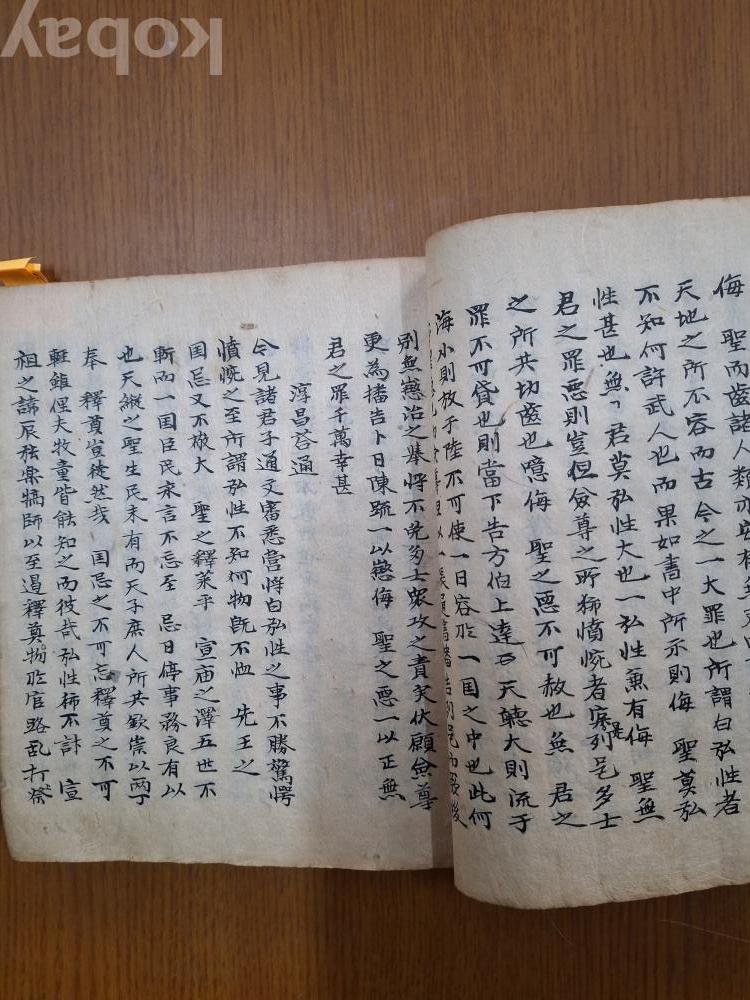 kobay
侮 聖而齒諸人類亦
天地之所不容而古今之一大罪也所謂白弘性者
不知何許武人也而果如書中所示則侮 聖莫弘
性甚也無君莫弘性大也一弘性兼有侮 聖無
君之罪惡則豈但僉尊之所獨憤惋者寔是列邑多士
之所共切齒也噫侮 聖之惡不可赦也無 君之
罪不可貸也則當下告方伯上達 天聽大則流于
海小則放于陸不可使一日容於一国之中也此何
別無懲治之擧將不免多士衆攻之責矣伏願僉尊
更為播告卜日陳疏一以懲侮 聖之惡一以正無
君之罪千萬幸甚
淳昌答通
今見諸君子通文審悉營將白弘性之事不勝驚愕
憤惋之至所謂弘性不知何物旣不恤 先王之
国忌又不敬大 聖之釋菜乎 宣庙之澤五世不
斬而一国臣民來言不忘至 忌日停事務良有以
也天縱之聖生民未有而天子庶人所共欽崇以兩丁
奉 釋奠豈徒然哉 国忌之不可忘釋奠之不可
輕雖俚夫牧童皆能知之而彼哉弘性獨不計 宣
祖之諱辰張樂犒師以至過釋奠物於官路乱打祭